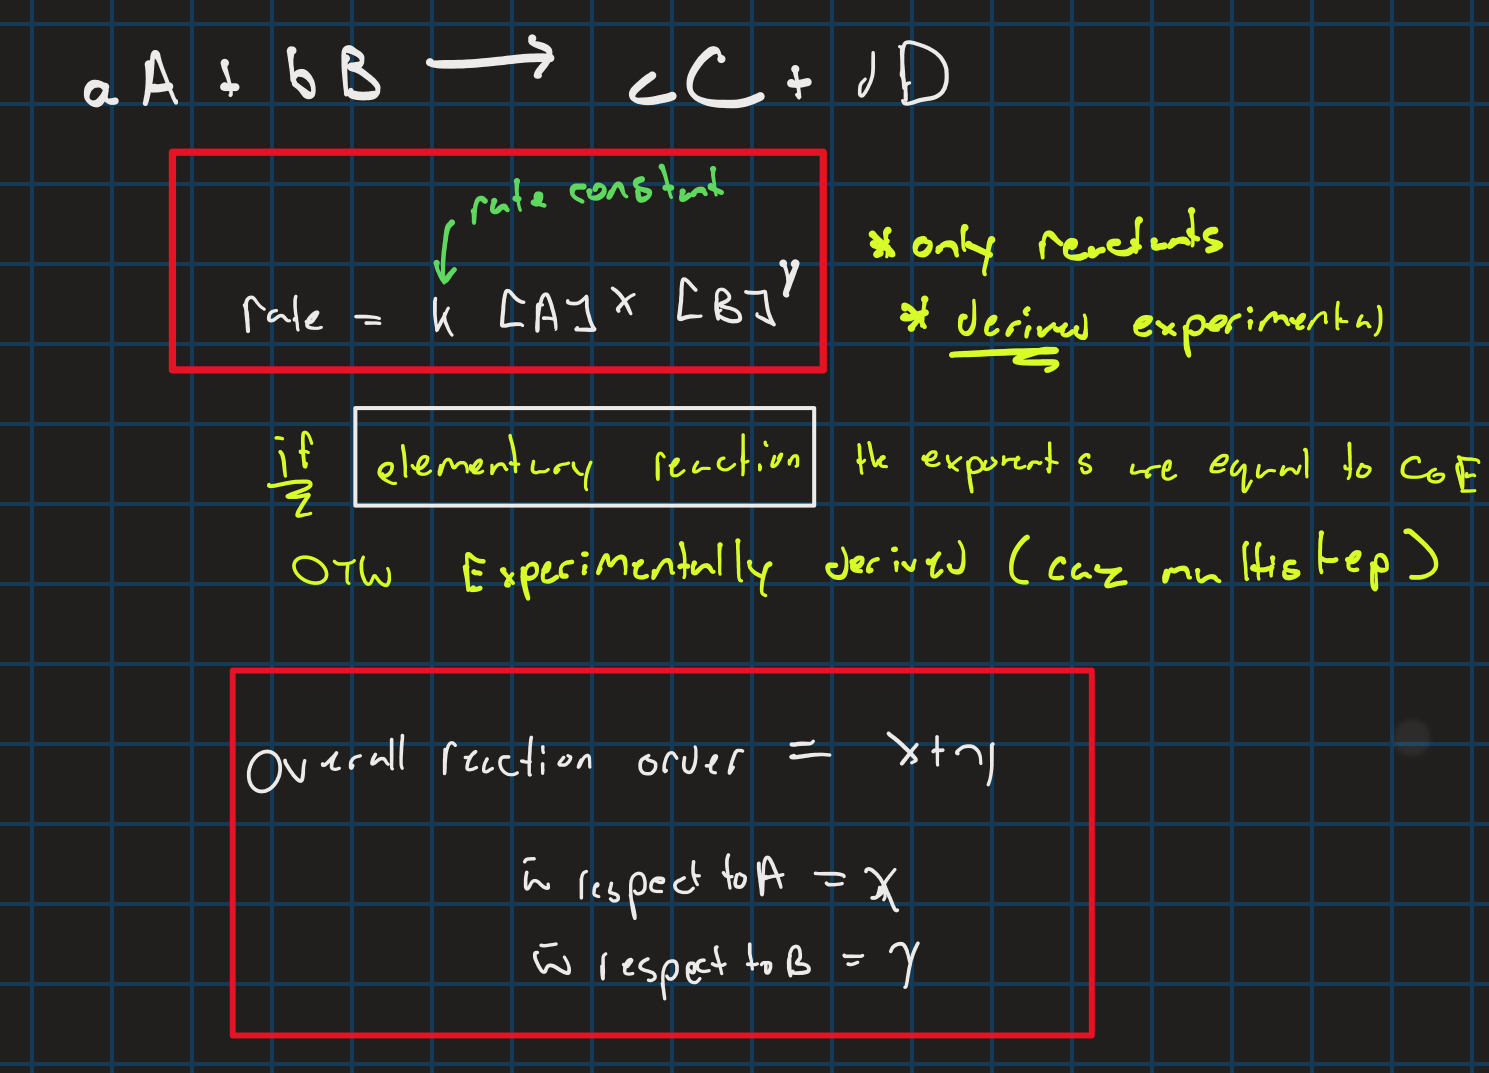 aA + bB → cC + dD
rate constant
rate = k [A]ˣ [B]ʸ
* only reactants
* derived experimental
if elementary reaction the exponents are equal to COE
OTW Experimentally derived (cuz multistep)
Overall reaction order = x+y
w̄ respect to A = x
w̄ respect to B = y